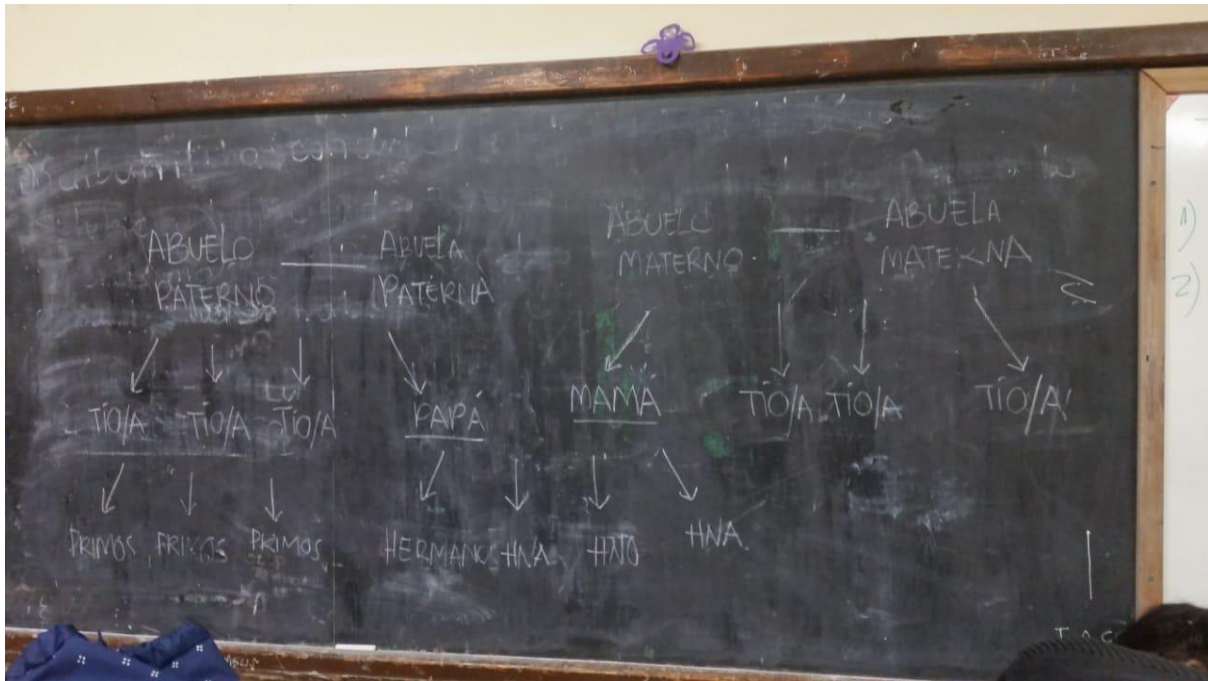 ABUELO
PATERNO
ABUELA
PATERNA
ABUELO
MATERNO
ABUELA
MATERNA
TÍO/A TÍO/A TÍO/A PAPÁ MAMÁ TÍO/A TÍO/A TÍO/A
PRIMOS PRIMOS PRIMOS HERMANOS HNA HNO HNA
1)
2)